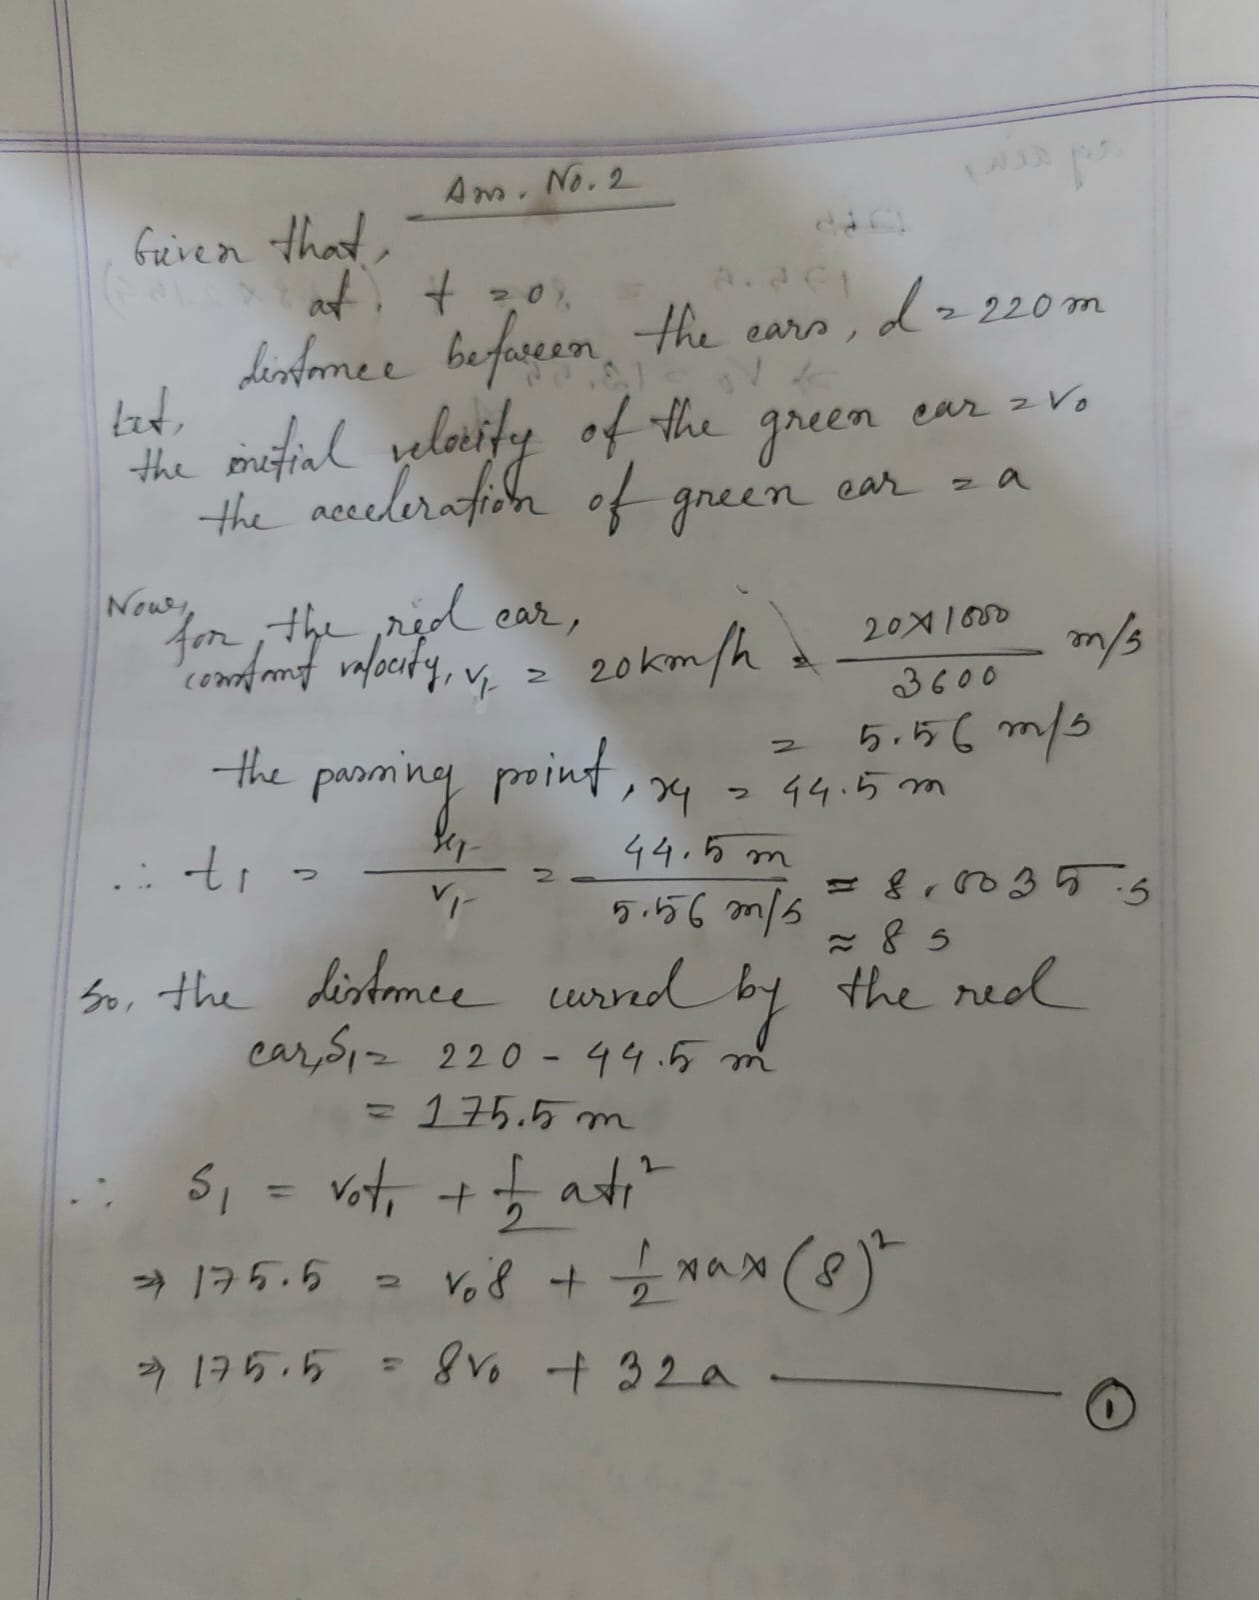 Ans. No. 2
Given that,
at, t = 0,
distance between the cars, d = 220 m
Let,
the initial velocity of the green car = v₀
the acceleration of green car = a
Now,
for the red car,
constant velocity, v₁ = 20 km/h = 20×1000/3600 m/s
= 5.56 m/s
the passing point, x₁ = 44.5 m
∴ t₁ = x₁/v₁ = 44.5 m/5.56 m/s = 8.0035 s
≈ 8 s
So, the distance curved by the red
car, S₁ = 220 - 44.5 m
= 175.5 m
∴ S₁ = v₀t₁ + 1/2 at₁²
⇒ 175.5 = v₀8 + 1/2 × a × (8)²
⇒ 175.5 = 8v₀ + 32a ——— ①